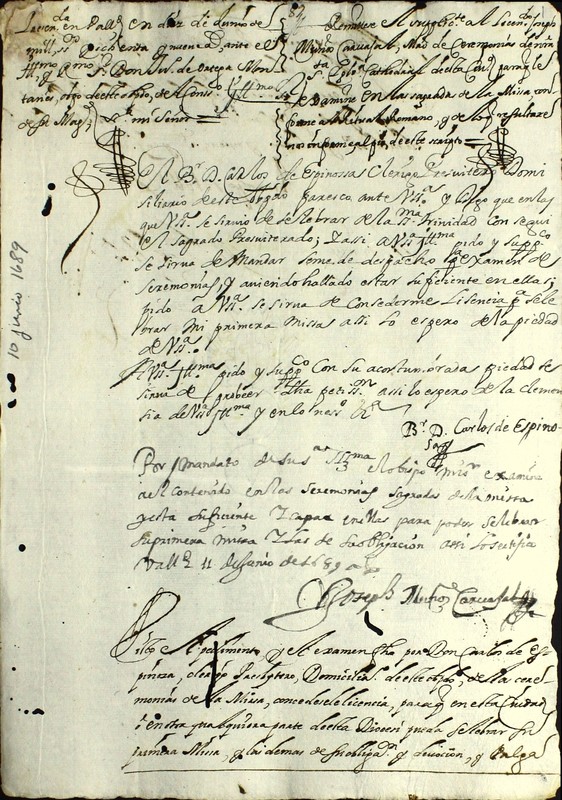 en Valld. en diez de Junio de
mill ss. ochenta y nueve as. ante el
Sr. Don Ju. de Ortega Mon
tañes, obpo deste obpdo, del Consejo
de su Magd.
Sr. mi Señor
Remitese el suppte. al Licendo. Joseph
Muñoz Carvasal, Mro. de Ceremonias de nra.
Sta. Iglesia Cathedral desta Ciud. para q le
examine en las sagradas de la Missa con
forme a el ritual Romano, y de lo q resultare
nos informe al pie de este scripto
El Br. D. Carlos de Espinossa Clerigo Presuitero Domi
siliario deste obpdo paresco ante VSa. y Digo que en las
que VSa. se siruio de selebrar de la ssma. Trinidad con segui
el Sagrado Presuiterado; y assi a VSa. Illma. pido y suppco.
se sirua de Mandar seme de despacho pa. examen de
seremonias, y auiendo hallado estar suficiente en ellas;
pido a VSa. se sirua de Consederme Lisencia pa. sele
brar mi primera Missa assi lo espero de la piedad
de VSa.
A VSa. Illma. pido y suppco. Con su acostumbrada piedad se
sirua de probeer dha petiss. assi lo espero de la clemen
sia de VSa. Illma. y en lo ness. &a.
Br. D. Carlos de Espino
sa
Por mandato de su sa. Illma. el obispo mi sr. examine
a el contenido en las seremonias sagradas de la missa
y esta suficiente y capaz en ellas para poder selebrar
su primera missa y las de su obligacion assi lo sertifico
Valld. 11 de Junio de 1689 as.
Joseph Muñoz Carvasal
Visto el pedimento, y el examen fho por Don Carlos de Es
pinoza, clerigo Presbytero, Domicilo. de este obpdo, de las cere
monias de la Missa, concedesele licencia, para q en esta Ciudad
o en otra qualquiera parte desta Diocesi pueda selebrar su
primera Missa, y las demas de su obligan. y divocion, y salga
10 junio 1689